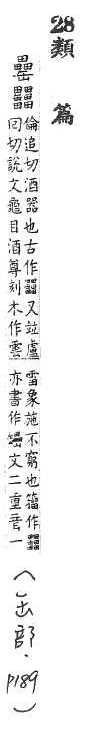 28類篇
罍 倫追切酒器也古作𤳳又竝盧
回切說文龜目酒尊刻木作雲
雷象施不窮也籀作
亦書作罍文二重音一
(缶部.p189)